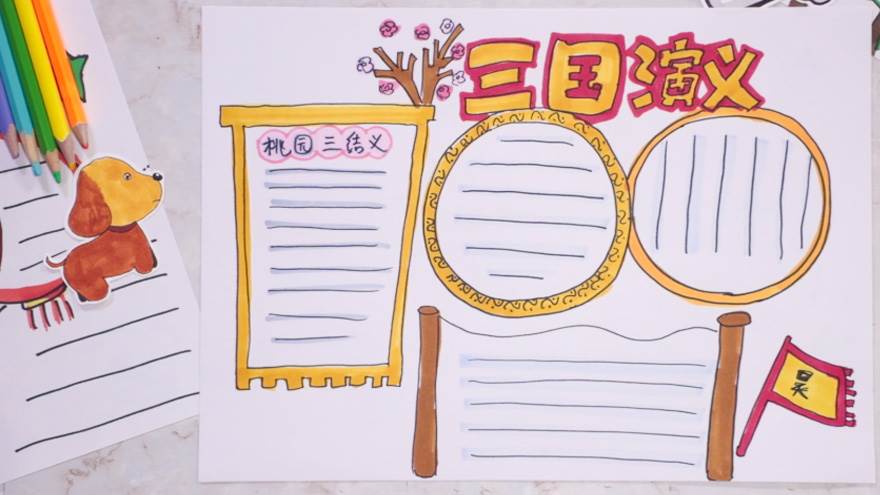 三国演义
桃园三结义